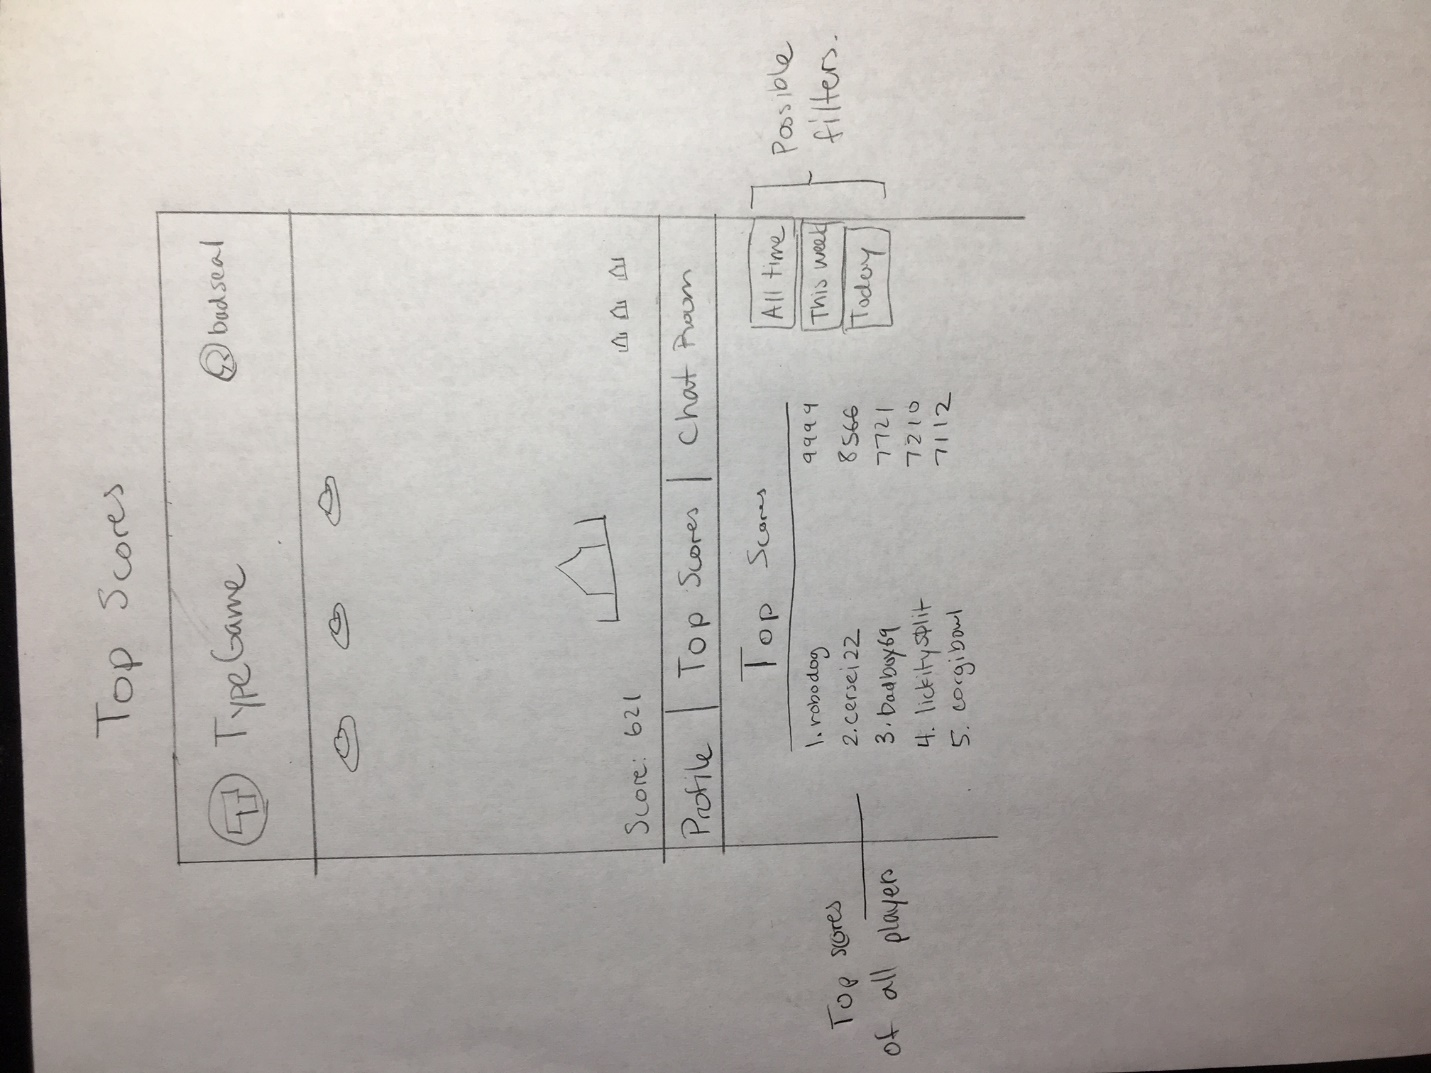 Top Scores
TypeGame
badseal
Score: 621
Profile | Top Scores | Chat Room
Top Scores
1. robodog 9999
2. cersei22 8566
3. badboy69 7721
4. lickitysplit 7210
5. corgibowl 7112
All time
This week
Today
Possible
filters.
Top scores
of all players